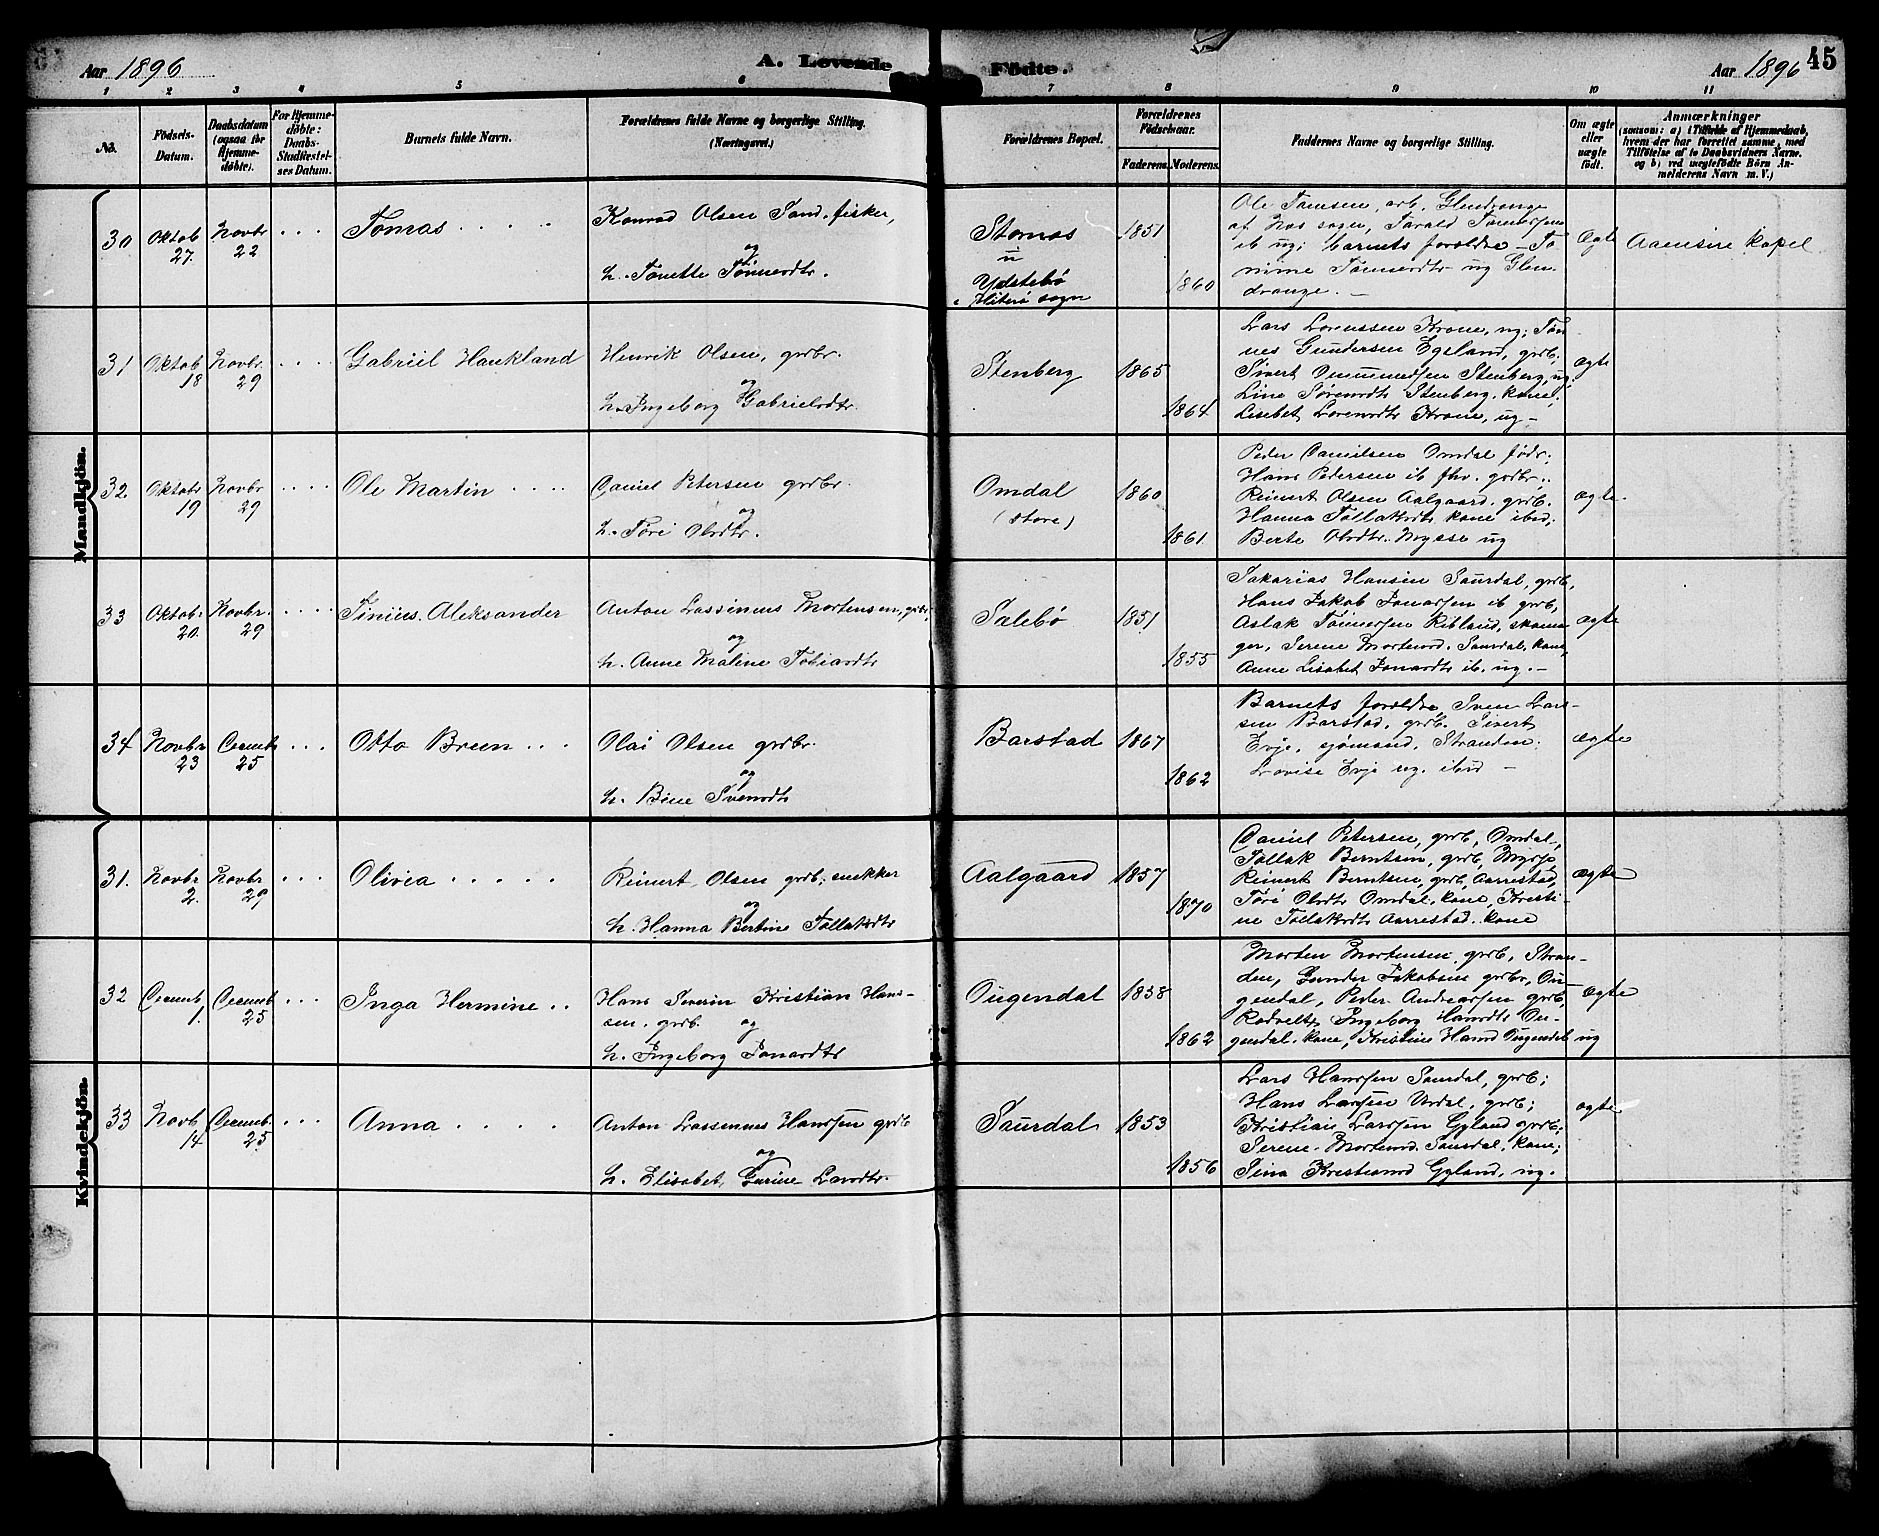 Aar 1896
A. Levende Födte.
Aar 1896
45
1 2 3 4 5 6 7 8 9 10 11
No.
Födsels-
Datum.
Daabsdatum
(ogsaa for
Hjemme-
döbte).
For Hjemme-
döbte:
Daabs-
Stadfæstel-
ses Datum.
Barnets fulde Navn.
Forældrenes fulde Navne og borgerlige Stilling.
(Næringsvei.)
Forældrenes Bopæl.
Forældrenes
Födselsaar.
Faderens. Moderens.
Faddernes Navne og borgerlige Stilling.
Om ægte
eller
uægte
födt.
Anmærkninger
(saasom: a) i Tilfælde af Hjemmedaab,
hvem der har forrettet samme, med
Tilföielse af to Daabsvidners Navne.
og b) ved uægtefödte Börn An-
melderens Navn m. V.)
Mandkjön.
30
Oktob
27.
Novbr
22
Tomas
Konrad Olsen Sand. fisker,
og
h. Tonette Tönnesdtr.
Stornes
Ydstebø
Hiterø sogn
1851
1860
af Næs sogn, Tarald
ib ug; barnets forældre
ug Glen-
drange.
Ægte
Aamsire kapel
31
Oktob
18
Novbr.
29
Gabriel Haukland
Henrik Olsen, grdbr.
og
h. Ingeborg Gabrielsdtr.
Stenberg
1865
1864
Lars Lorenssen Krone, ug; Tøn
nes Gundersen Egeland, grdb.
Sivert Ommundsen Stenberg, ug;
Line Sørensdtr Stenberg, kone;
Lisebet Lorensdtr Krone, ug
ægte
32.
Oktobr
19
Novbr
29
Ole Martin
Daniel Petersen grdbr.
og
h. Tøri Olsdtr.
Omdal
(store)
1860
1861
Peder Danielsen Omdal födr;
Hans Pedersen ib fhv. grdbr;
Reinert Olsen Aalgaard, grdb.
Hanna Tollaksdtr kone ibid;
Berte Olsdtr. Mysse ug
ægte.
33
Oktobr.
20.
Novbr.
29
Sinius. Aleksander
Anton Lassenius Mortensen, grdbr,
og
h. Anne Maline Tobiasdtr
Salebø
1851
1855
Sakarias Hansen Saurdal, grdb,
Hans Jakob Jonassen ib grdb,
Aslak Tønnessen Ribland, skoma-
ger, Serene Mortensd. Saurdal, kone,
Anne Lisabet Jonasdtr ib. ug.
ægte
34
Novbr
23
Decemb
25
Otto Breen
Olai Olsen grdbr.
og
h. Bine Svensdtr
Barstad
1867
1862
Barnets forældre, Sven Lar-
sen Barstad, grdb. Sivert
Evje, sjømand, Stranden;
Lovise Evje ug. ibid
ægte
Kvindekjön.
31.
Novbr
2.
Novbr
29
Olivia
Reinert Olsen grdb; snekker
og
h. Hanna Bertine Tollaksdtr
Aalgaard
1857
1870
Daniel Petersen, grdb, Omdal,
Tollak Berntsen, grdb, Mysse,
Reinert Berntsen, grdb, Aarrestad,
Tøri Olsdtr Omdal, kone, Kristi-
ne Tollaksdtr Aarrestad. kone
ægte
32
Decemb
1.
Decemb
25
Inga Hermine
Hans Severin Kristian Han-
sen. grdb. og
h. Ingeborg Jonasdtr
Ougendal
1858
1862
Morten Mortensen grdb, Stran-
den, Gunder Jakobsen grdbr, Ou-
gendal, Peder Andreassen grdb,
Rødvelt, Ingeborg Hansdtr Ou-
gendal. kone, Kristine Hansd Ougendal ug
ægte
33
Novb
14.
Decemb.
25
Anna
Anton Lassennes Hanssen grdb
og
h. Elisabet Gurine Larsdtr.
Saurdal
1853
1856
Lars Hanssen Saurdal, grdb;
Hans Larssen Urdal, grdb;
Kristian Larssen Gyland grdb;
Serene Mortensd. Saurdal, kone;
Sina Kristiansd Gyland, ug.
ægte